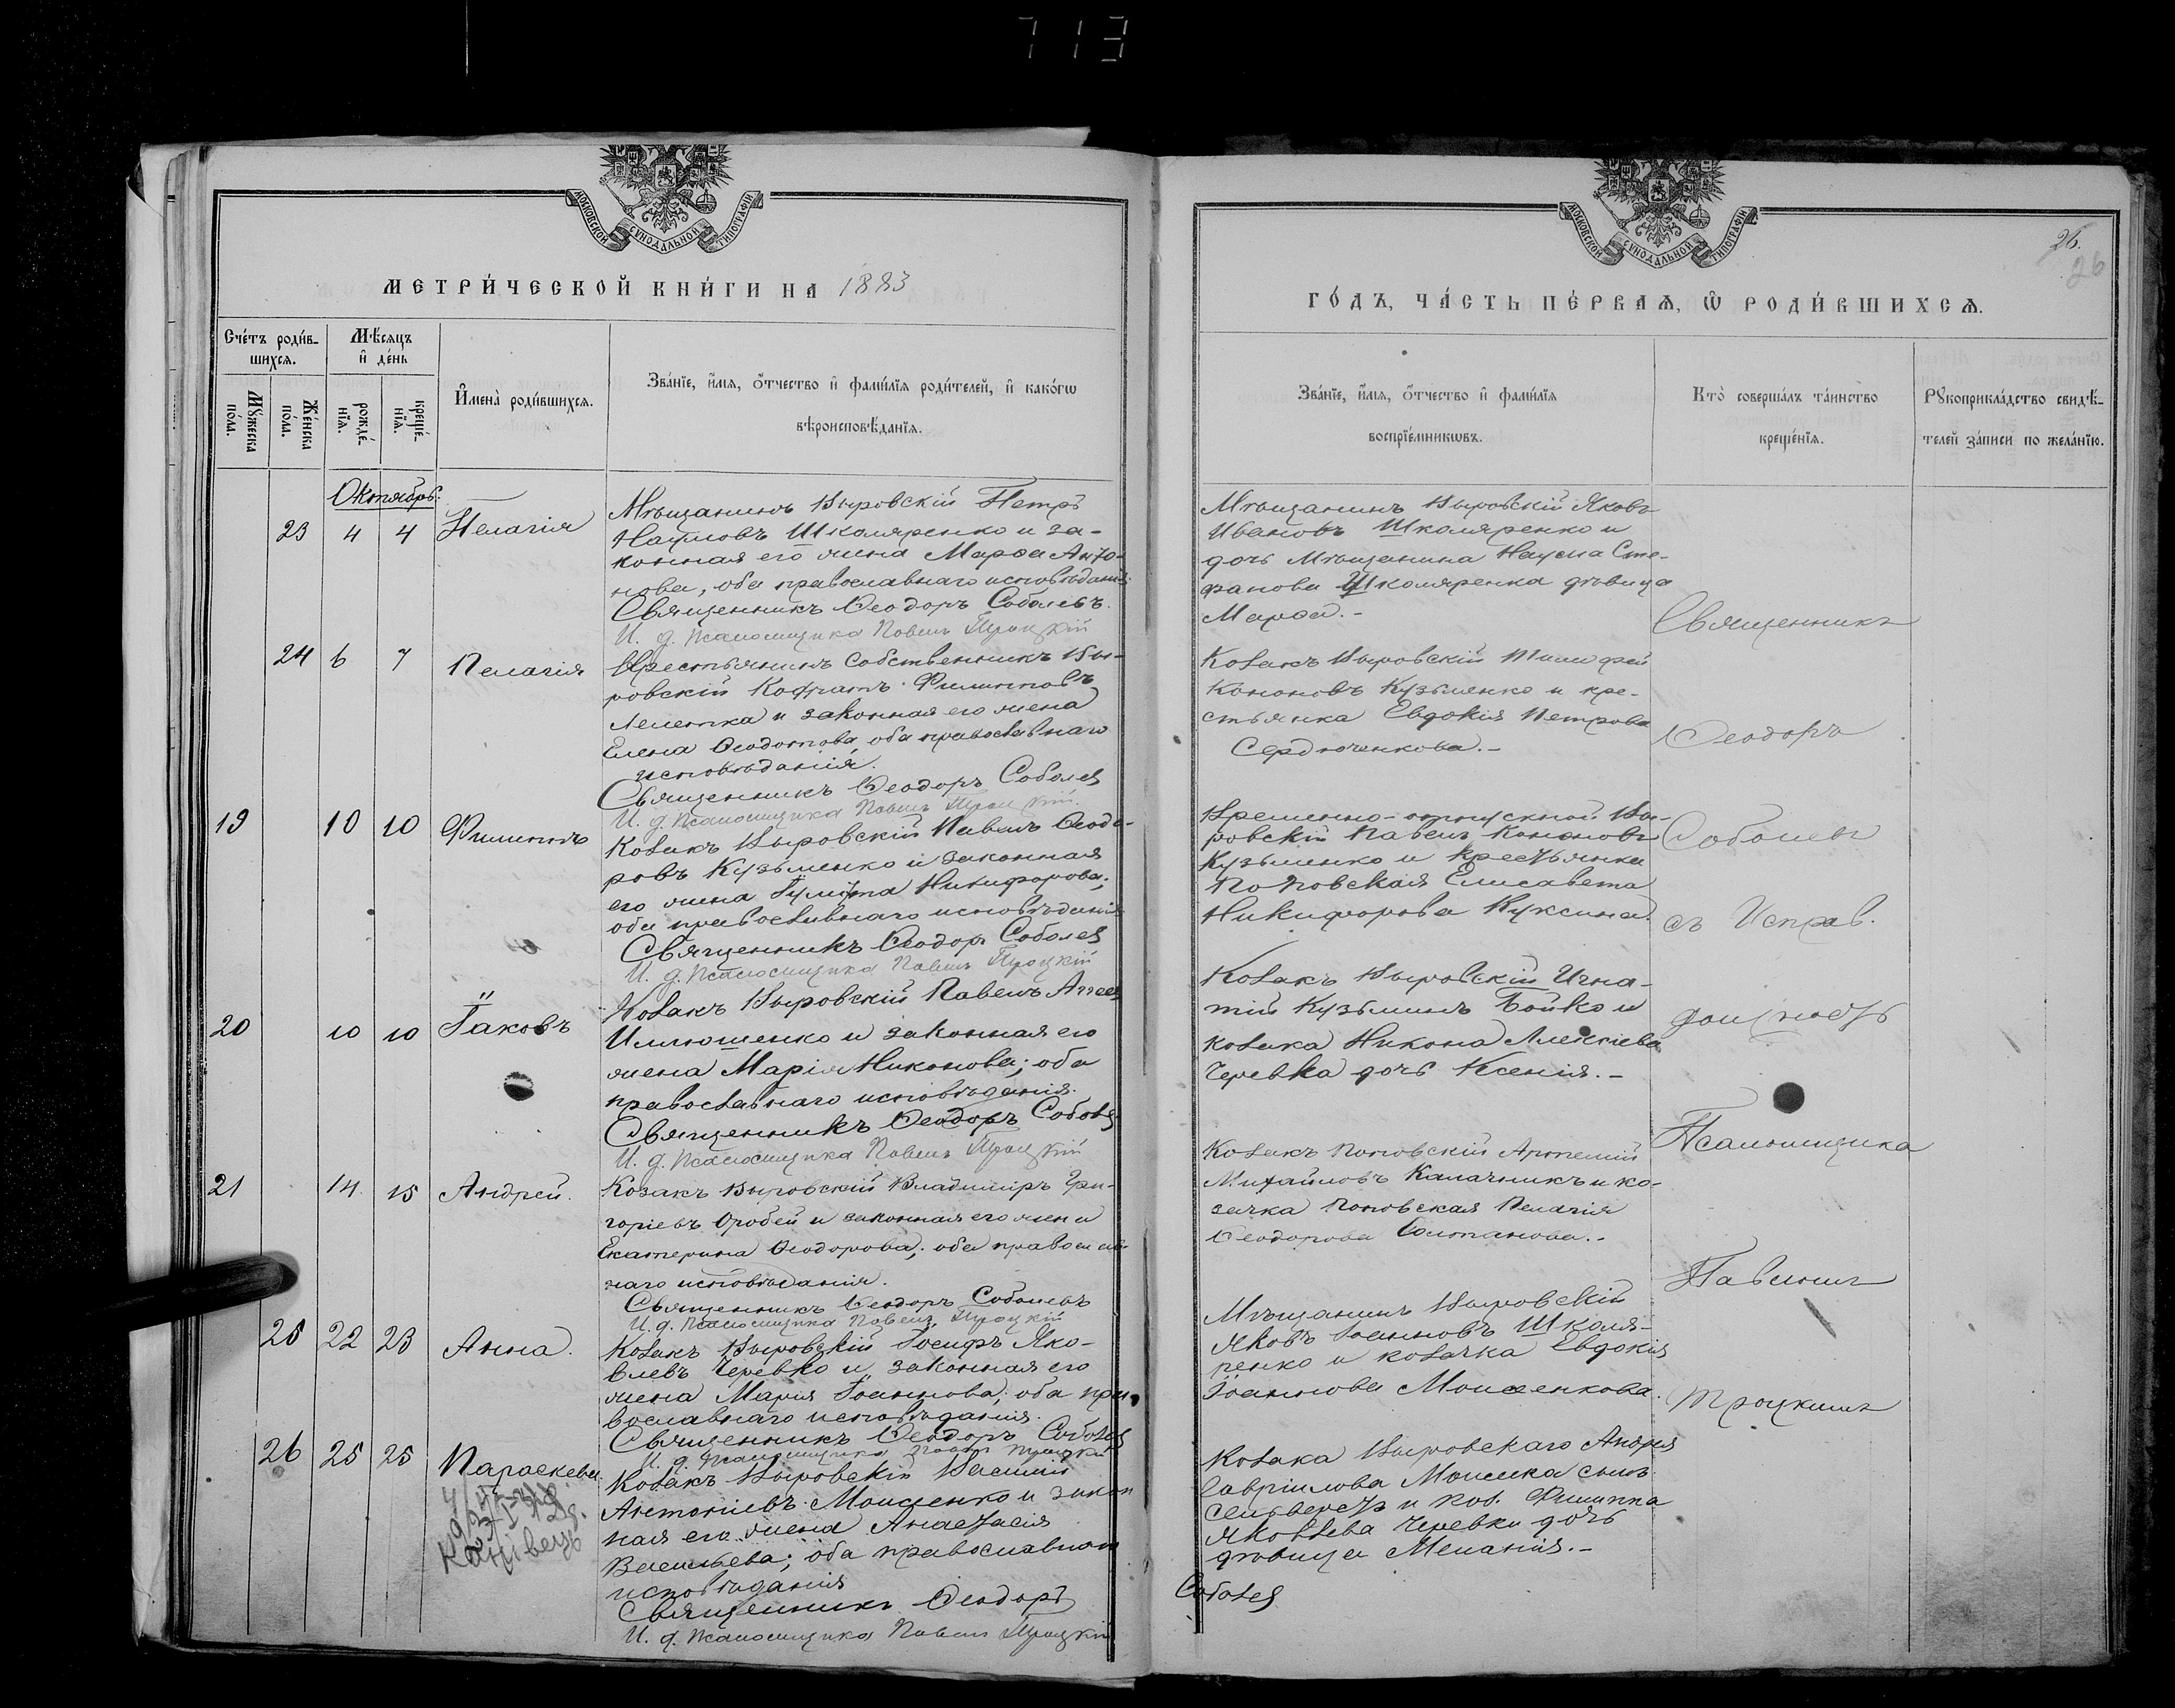 713
МОСКОВСКОЙ СѴНОДАЛЬНОЙ ТИПОГРАФІИ
МЕТРИ́ЧЕСКОЙ КНИ́ГИ НА 1883
Сче́тъ роди́в-
шихсѧ.
Мѣ́сѧцъ
и де́нь
Мꙋ́жеска
по́ла.
Же́нска
по́ла.
рожде́-
нїѧ.
креще́-
нїѧ.
И҆мена̀ роди́вшихсѧ.
Зва́нїе, и҆́мѧ, ѻ҆́тчество и҆ фами́лїѧ роди́телей, и҆ како́гѡ
вѣроисповѣ́данїѧ.
Октябрь.
23 4 4 Пелагія
Мѣщанинъ Выровскій Петръ
Наумовъ Школяренко и за-
конная его жена Марѳа Анто-
нова, оба православнаго исповѣданія.
Священникъ Ѳеодоръ Соболевъ.
И. д. Псаломщика Павелъ Троцкій
24 6 7 Пелагія
Крестьянинъ собственникъ Вы-
ровскій Кодратъ Филипповъ
и законная его жена
Елена Ѳеодотова, оба православнаго
исповѣданія.
Священникъ Ѳеодоръ Соболев
И. д. Псаломщика Павелъ Троцкій.
19 10 10 Филиппъ
Козакъ Выровскій Павелъ Ѳеодо-
ровъ Кузьменко и законная
его жена Гулита Никифорова;
оба православнаго исповѣданія
Священникъ Ѳеодоръ Соболев
И. д. Псаломщика Павелъ Троцкій
20 10 10 Іаковъ
Козакъ Выровскій Павелъ
Иллюшенко и законная его
жена Марія Никонова; оба
православнаго исповѣданія.
Священникъ Ѳеодоръ Соболев
И. д. Псаломщика Павелъ Троцкій
21 14 15 Андрей.
Козакъ Выровскій Владиміръ Гри-
горіевъ и законная его жена
Екатерина Ѳеодорова; оба православ-
наго исповѣданія.
Священникъ Ѳеодоръ Соболевъ
И. д. Псаломщика Павелъ Троцкій
25 22 23 Анна.
Козакъ Выровскій Іосифъ Яко-
влевъ Черевко и законная его
жена Марія Іоаннова; оба пра-
вославнаго исповѣданія.
Священникъ Ѳеодоръ Соболев
И. д. Псаломщика Павелъ Троцкій
26 25 25 Параскева.
Козакъ Выровскій Василій
Антоніевъ Моисеенко и закон
ная его жена Анастасія
Васильева; оба православнаго
исповѣданія
Священникъ Ѳеодоръ
И. д. Псаломщика Павелъ Троцкій
26.
26
МОСКОВСКОЙ СѴНОДАЛЬНОЙ ТИПОГРАФІИ
ГО́ДЪ, ЧА́СТЬ ПЕ́РВАѦ, Ѽ РОДИ́ВШИХСѦ.
Зва́нїе, и҆́мѧ, ѻ҆́тчество и҆ фами́лїѧ
воспрїе́мникѡвъ.
Кто̀ соверша́лъ та́инство
креще́нїѧ.
Рꙋкоприкла́дство свидѣ́-
телей за́писи по жела́нїю.
Мѣщанинъ Выровскій Яковъ
Ивановъ Школяренко и
дочь Мѣщанина Наума Сте-
фанова Школяренка дѣвица
Марѳа.-
Козакъ Выровскій Тимофей
Кононовъ Кузьменко и кре-
стьянка Евдокія Петрова
Сердюченкова.-
Временно-отпускной Вы-
ровскій Павелъ Кононовъ
Кузьменко и крестьянка
Поповская Елисавета
Никифорова Куксина.
Козакъ Выровскій Игна-
тій Кузьминъ Бойко и
козака Никона Алексіева
Черевка дочь Ксенія.-
Козакъ Поповскій Артемій
Михайловъ Калачникъ и ко-
зачка Поповская Пелагія
Ѳеодорова Солтанова.-
Мѣщанинъ Выровскій
Яковъ Іоанновъ Школя-
ренко и козачка Евдокія
Іоаннова Моисеенкова.
Козака Выровскаго Андрея
Гавріилова сынъ
Сильвестръ и коз. Филиппа
Яковлева Черевки дочь
дѣвица Меланія.-
Соболев
Священникъ
Ѳеодоръ
Соболевъ
съ Исправ.
должность
Псаломщика
Павломъ
Троцкимъ